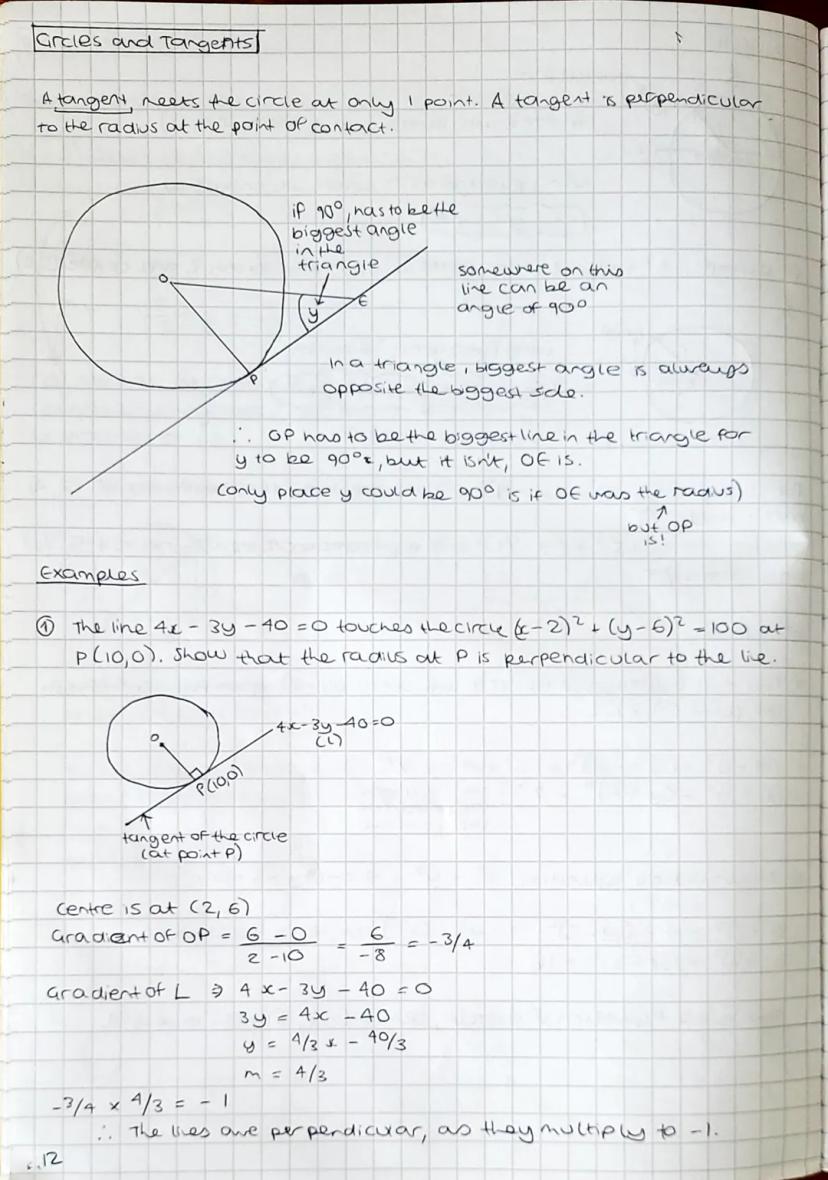 Circles and Tangents
A tangent, meets the circle at only 1 point. A tangent is perpendicular
to the radius at the point of contact.
if 90°, has to be the
biggest angle
in the
triangle
somewhere on this
line can be an
angle of 90°
O
y
E
P
In a triangle, biggest angle is always
opposite the biggest side.
∴ OP has to be the biggest line in the triangle for
y to be 90°, but it isn't, OE is.
(only place y could be 90° is if OE was the radius)
but OP
is!
Examples
① The line 4x - 3y - 40 = 0 touches the circle (x-2)² + (y-6)² = 100 at
P(10,0). Show that the radius at P is perpendicular to the line.
4x-3y-40=0
(L)
O
P(10,0)
tangent of the circle
(at point P)
Centre is at (2, 6)
Gradient of OP = 6 - 0 / 2 - 10 = 6 / -8 = -3/4
Gradient of L ⇒ 4x - 3y - 40 = 0
3y = 4x - 40
y = 4/3 x - 40/3
m = 4/3
-3/4 × 4/3 = -1
∴ The lines are perpendicular, as they multiply to -1.
12